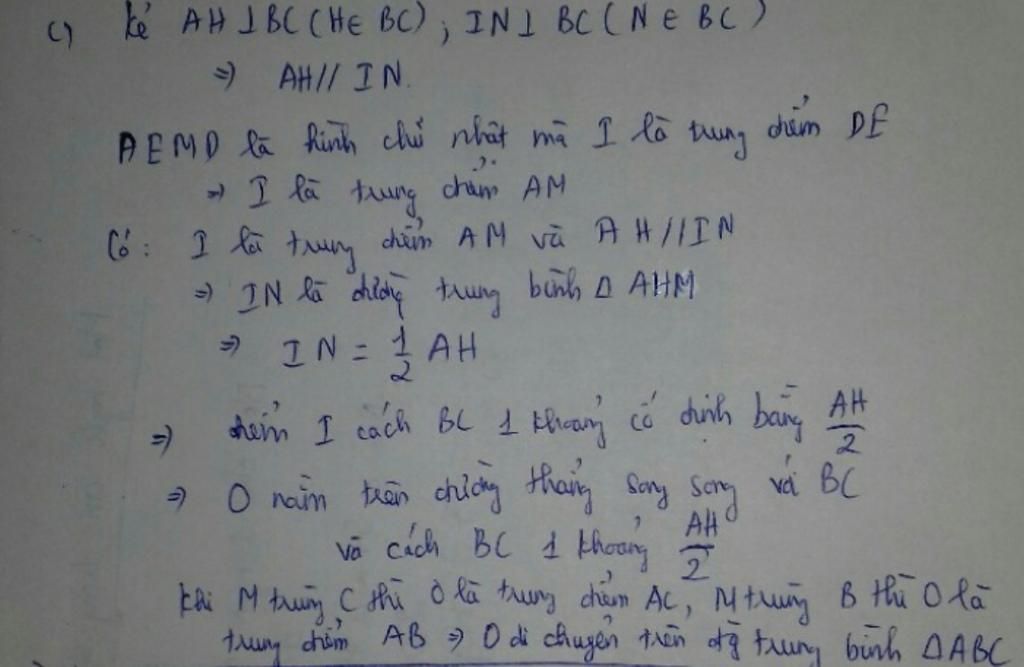 c) Kẻ AH⊥BC (H∈ BC) ; IN⊥ BC ( N ∈ BC )
=> AH// IN.
AEMD là hình chữ nhật mà I là trung điểm DE
=> I là trung điểm AM
Có: I là trung điểm AM và AH//IN
=> IN là đường trung bình Δ AHM
=> IN = 1/2 AH
=> điểm I cách BC 1 khoảng cố định bằng AH/2
=> O nằm trên đường thẳng song song với BC
và cách BC 1 khoảng AH/2
Khi M trùng C thì O là trung điểm AC, M trùng B thì O là
trung điểm AB => O di chuyển trên đg trung bình ΔABC